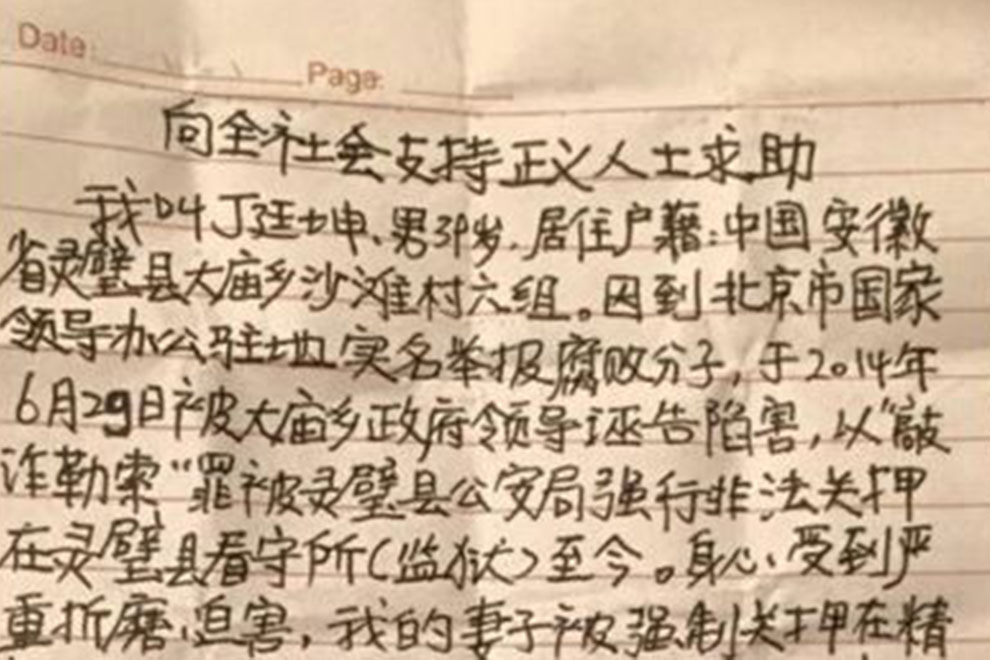 Date: Page:
向全社会支持正义人士求助
我叫丁廷坤、男39岁.居住户籍:中国安徽
省灵璧县大庙乡沙滩村六组。因到北京市国家
领导办公驻地实名举报腐败分子,于2014年
6月29日被大庙乡政府领导诬告陷害,以“敲
诈勒索“罪被灵璧县公安局强行非法关押
在灵璧县看守所(监狱)至今。身心受到严
重折磨、迫害,我的妻子被强制关押在精